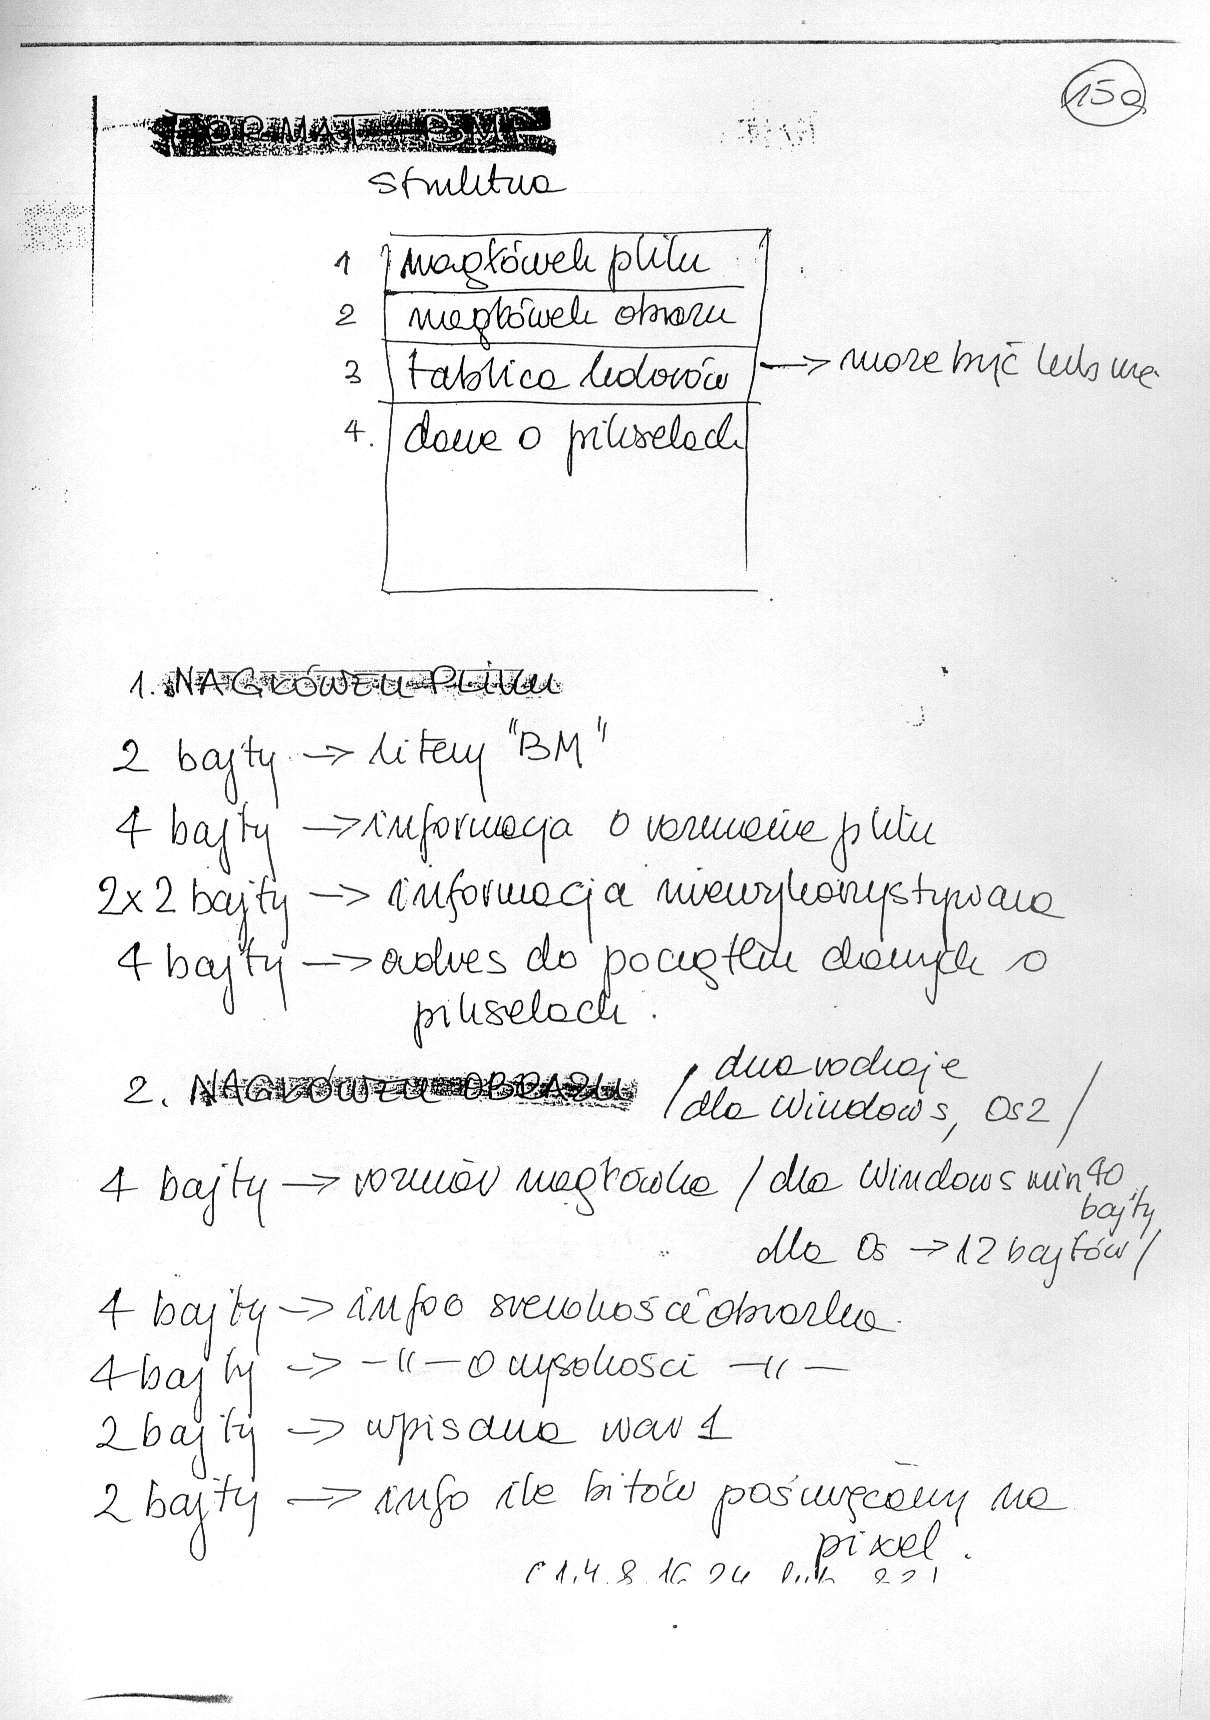 150
FORMAT BMP
struktura
1 nagłówek pliku
2 nagłówek obrazu
3 tablica kolorów → może być lub nie
4. dane o pikselach
1. NAGŁÓWEK PLIKU
2 bajty → litery "BM"
4 bajty → informacja o rozmiarze pliku
2x2 bajty → informacja niewykorzystywana
4 bajty → adres do początku danych o
pikselach.
2. NAGŁÓWEK OBRAZU / dwa rodzaje
dla Windows, Os2 /
4 bajty → rozmiar nagłówka / dla Windows min 40
bajty
dla Os → 12 bajtów /
4 bajty → info o szerokości obrazka
4 bajty → -"- o wysokości -"-
2 bajty → wpisana war 1
2 bajty → info ile bitów poświęcony na
pixel.
(1,4,8,16,24 lub 32)